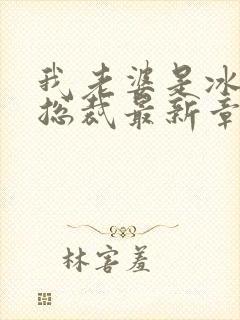 我老婆是冰
总裁最新章
林害羞